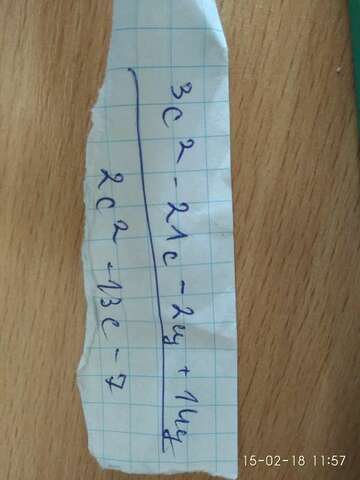 3c² - 21c - 2y + 14y
2c² - 13c - 7
15-02-18 11:57